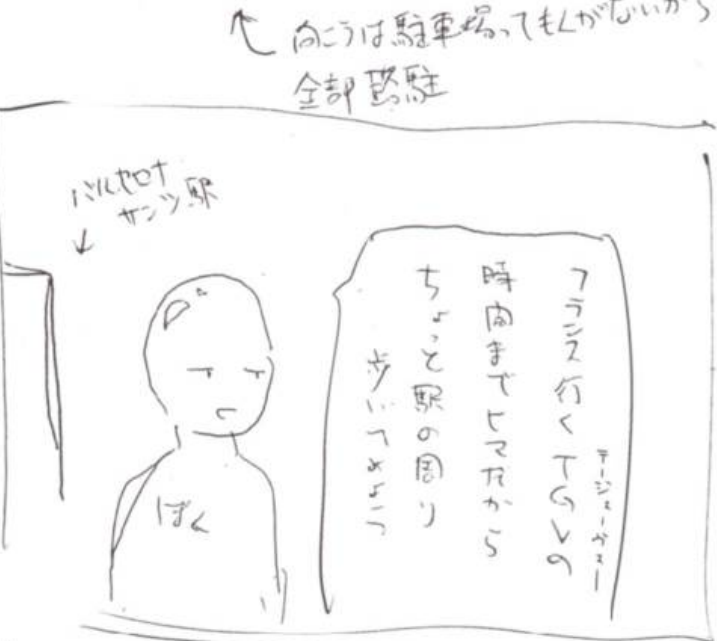 向こうは駐車場ってもんがないから
全部路駐
バルセロナ
サンツ駅
フランス行くTGVの
テージェーヴェー
時間までヒマだから
ちょっと駅の周り
歩いてみよう
ぼく